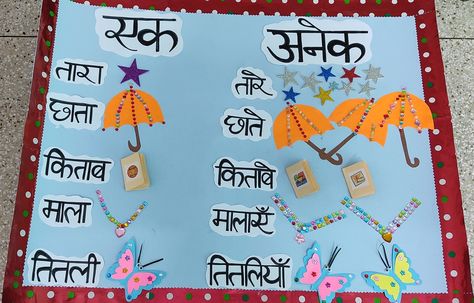 एक अनेक
तारा तारे
छाता छाते
किताव कितावे
माला मालाएँ
तितली तितलियाँ